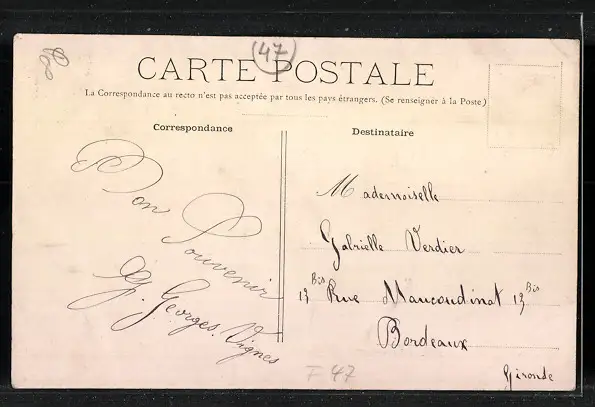 (47)
CARTE POSTALE
La Correspondance au recto n'est pas acceptée par tous les pays étrangers. (Se renseigner à la Poste)
Correspondance
Bon
Souvenir
Georges Vignes
Destinataire
Mademoiselle
Gabrielle Verdier
13 Bis Rue Maucoudinat 13 Bis
Bordeaux
Gironde
F 47